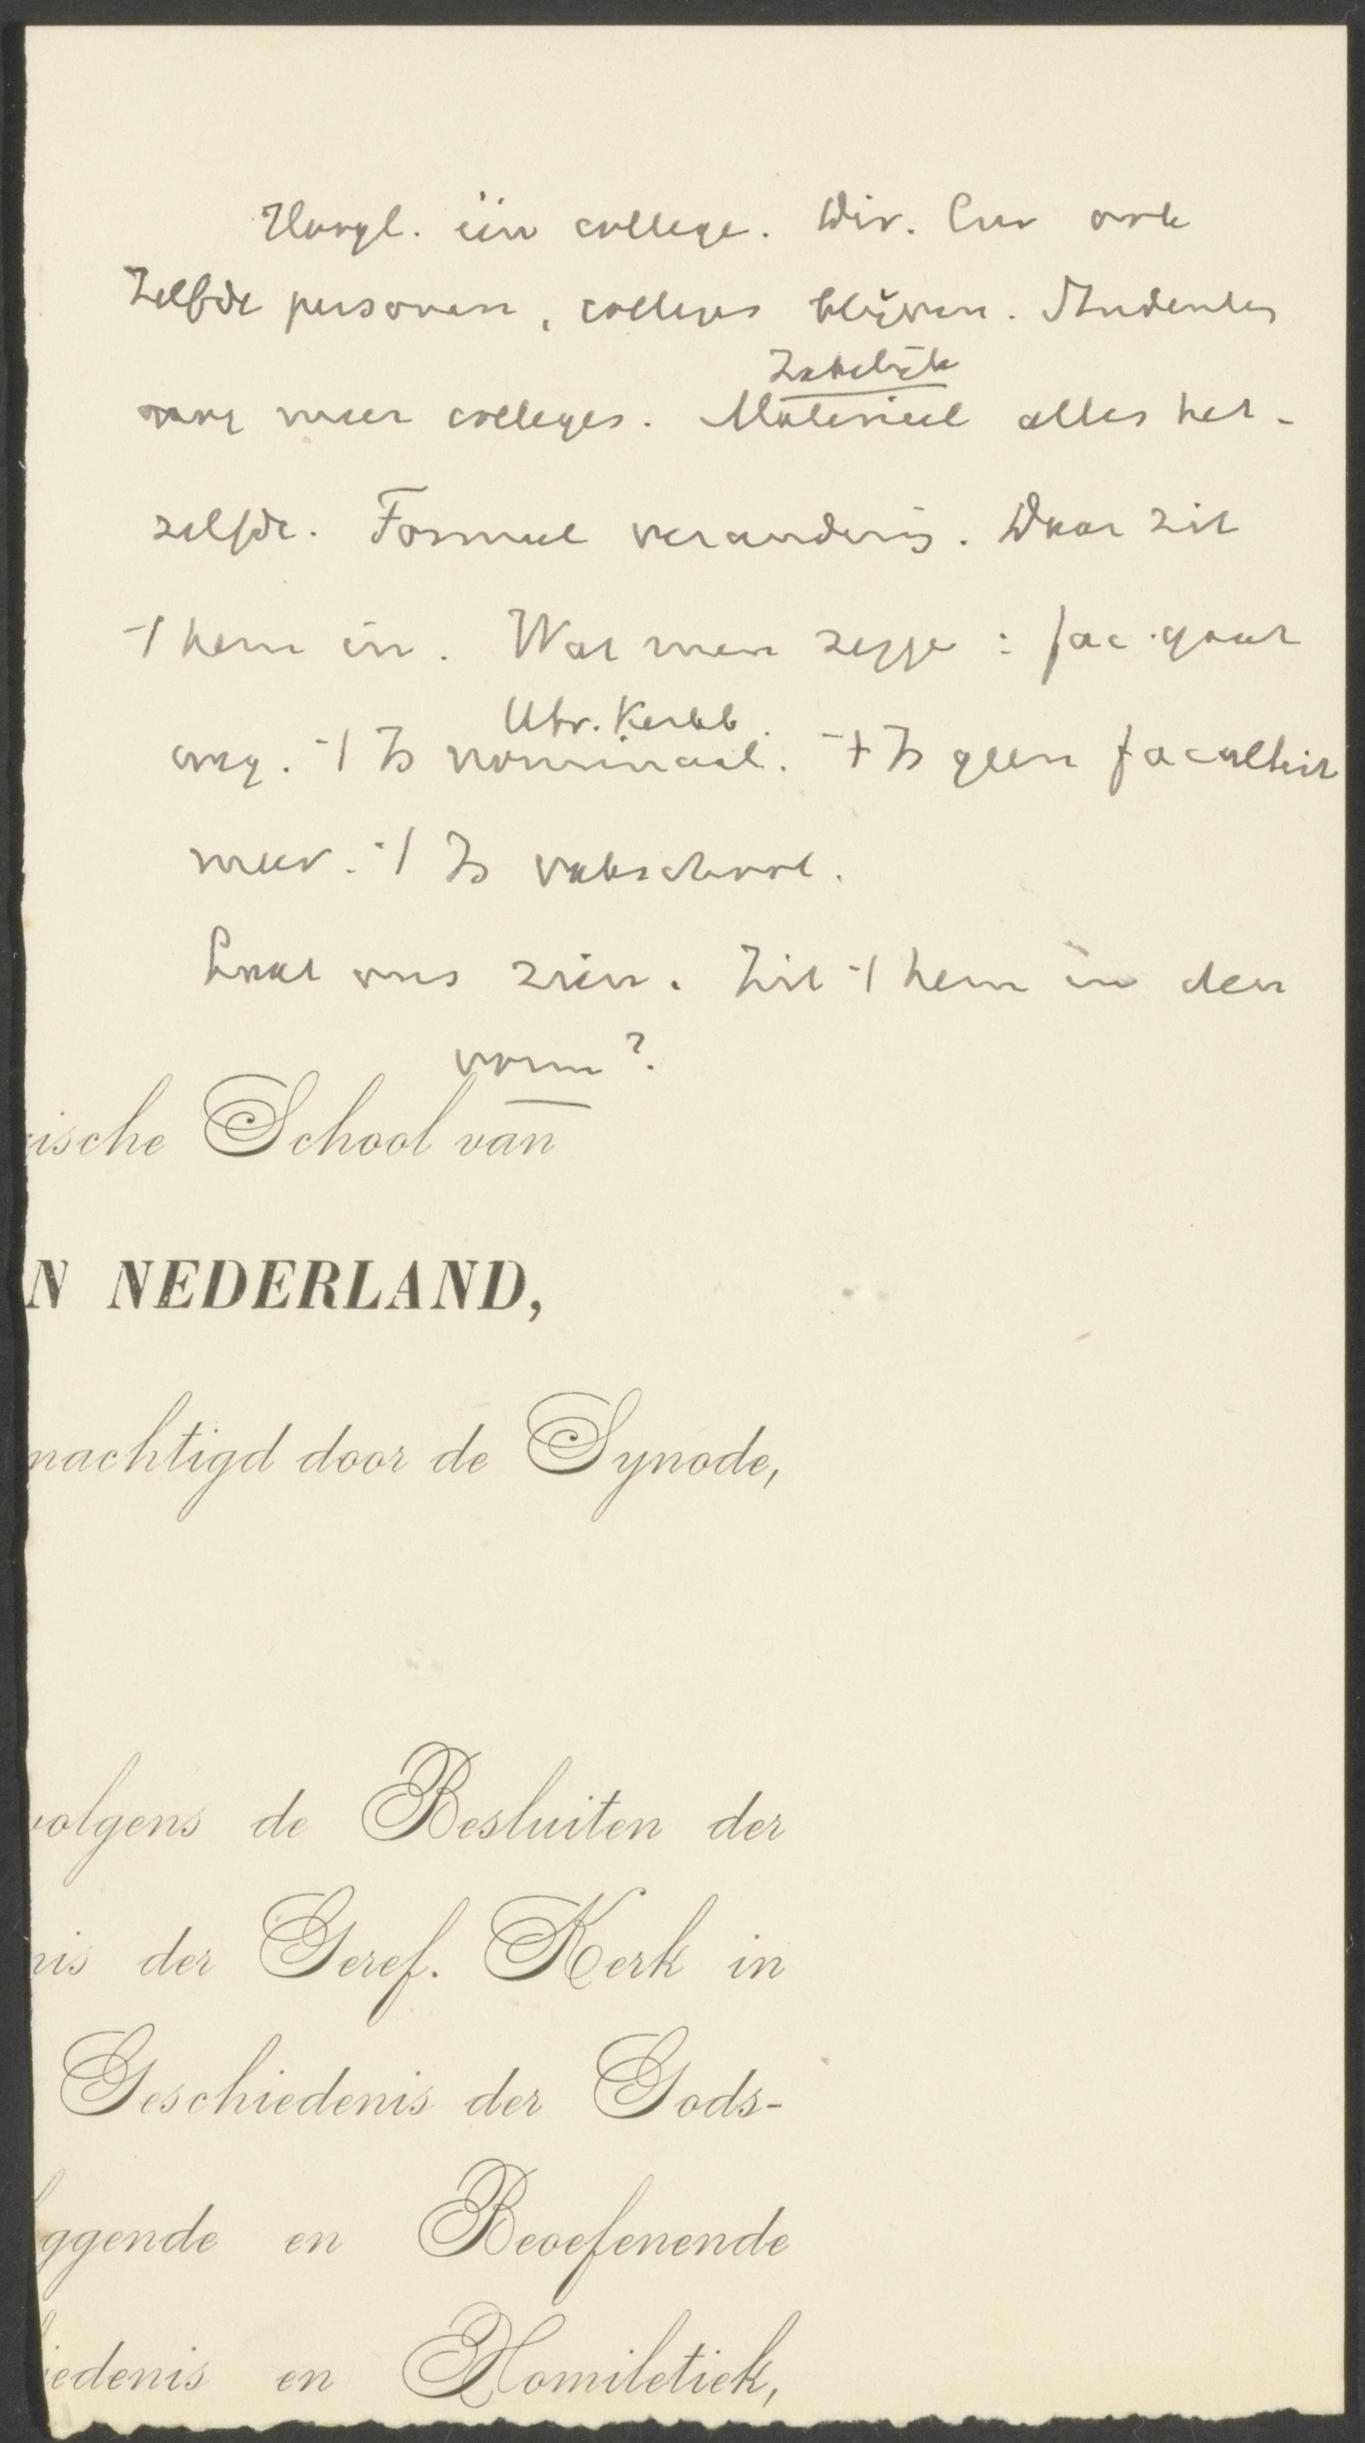 Hoogl. één college. Dir. Cur ook
Zelfde personen, colleges blijven. Studenten
nog meer colleges. Materieel alles het-
Zakelijk
zelfde. Formeel verandering. Daar zit
't hem in. Wat men zegge: fac. gaat
weg. 't Is nominaal. 't Is geen faculteit
Utr. Kerkb.
meer. 't Is vakschool.
Laat ons zien. Zit 't hem in den
vorm?
ische School van
N NEDERLAND,
machtigd door de Synode,
volgens de Besluiten der
nis der Geref. Kerk in
Geschiedenis der Gods-
ggende en Beoefenende
iedenis en Homiletiek,